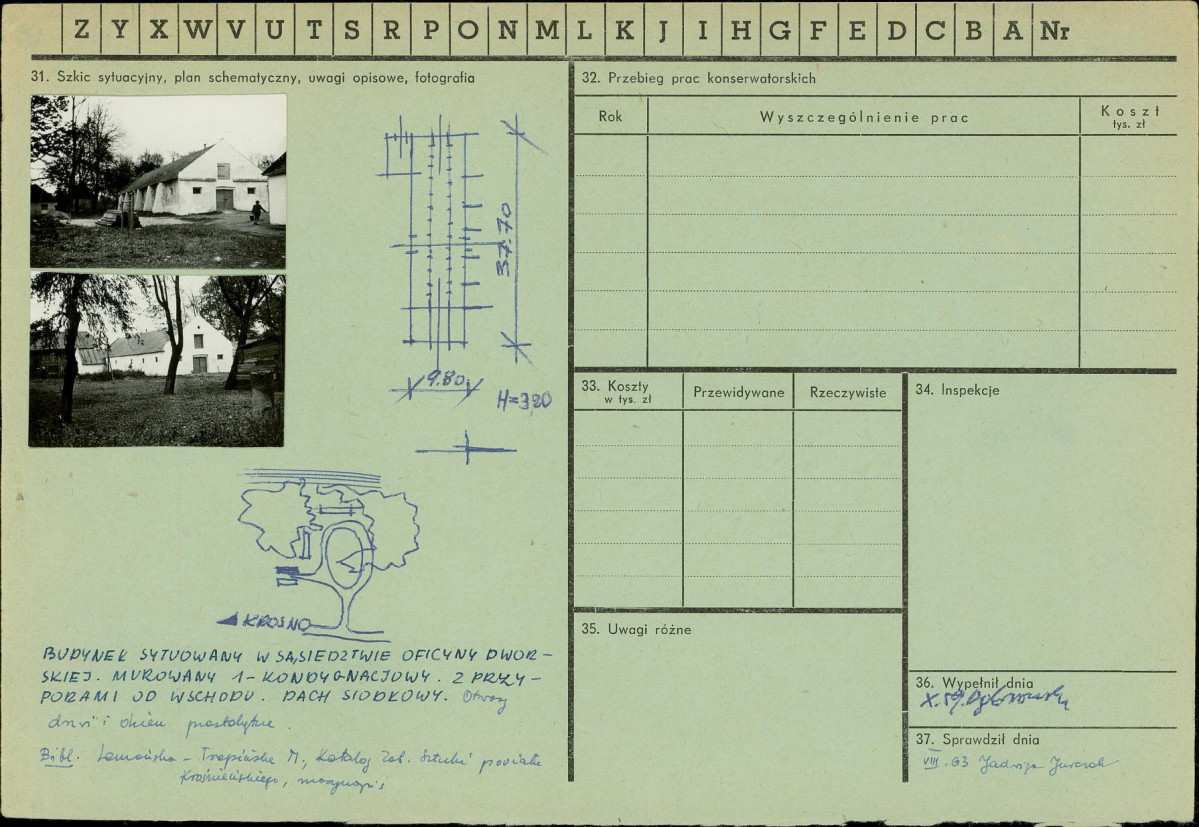 Z Y X W V U T S R P O N M L K J I H G F E D C B A Nr
31. Szkic sytuacyjny, plan schematyczny, uwagi opisowe, fotografia
37.70
9.80
H=3,20
KROSNO
BUDYNEK SYTUOWANY W SĄSIEDZTWIE OFICYNY DWOR-
SKIEJ. MUROWANY 1-KONDYGNACJOWY. Z PRZY-
PORAMI OD WSCHODU. DACH SIODŁOWY. Otwory
drzwi i okien prostokątne.
Bibl. - Trepińska M, Katalog Zab. Sztuki powiatu
Krośnieńskiego, maszynopis
32. Przebieg prac konserwatorskich
Rok
Wyszczególnienie prac
Koszt
tys. zł
33. Koszty
w tys. zł
Przewidywane
Rzeczywiste
34. Inspekcje
35. Uwagi różne
36. Wypełnił dnia
X.59.
37. Sprawdził dnia
VIII.63 Jadwiga